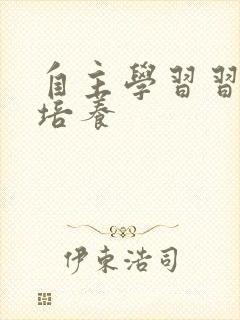 自主學習習
培養
伊東浩司